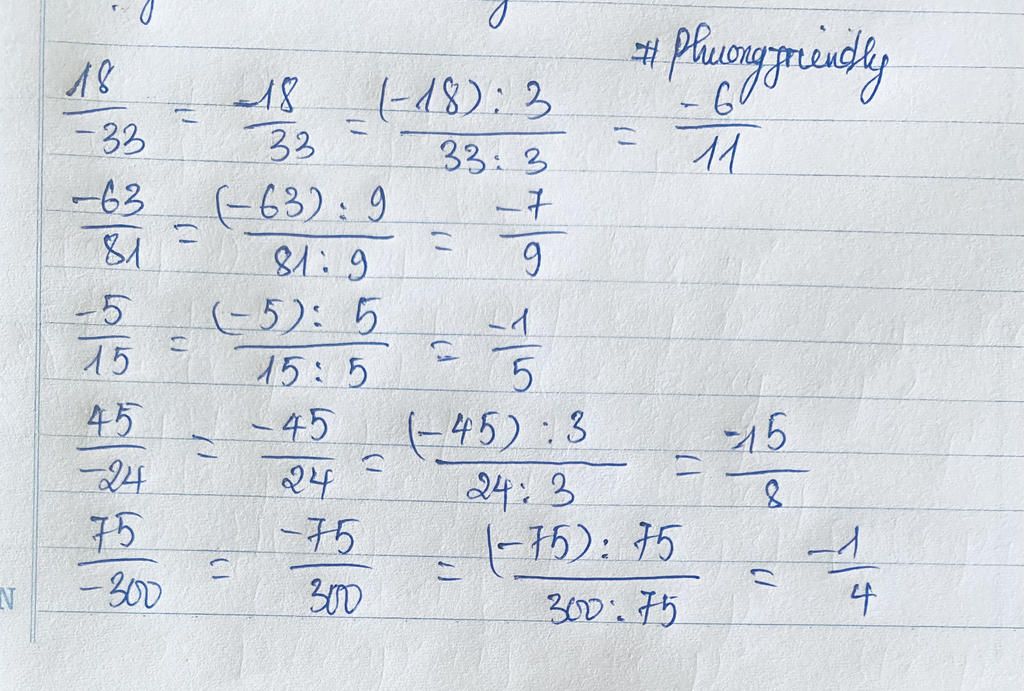 #Phuongfriendly
18/-33 = -18/33 = (-18) : 3/33 : 3 = -6/11
-63/81 = (-63) : 9/81 : 9 = -7/9
-5/15 = (-5) : 5/15 : 5 = -1/5
45/-24 = -45/24 = (-45) : 3/24 : 3 = -15/8
75/-300 = -75/300 = (-75) : 75/300 : 75 = -1/4
N